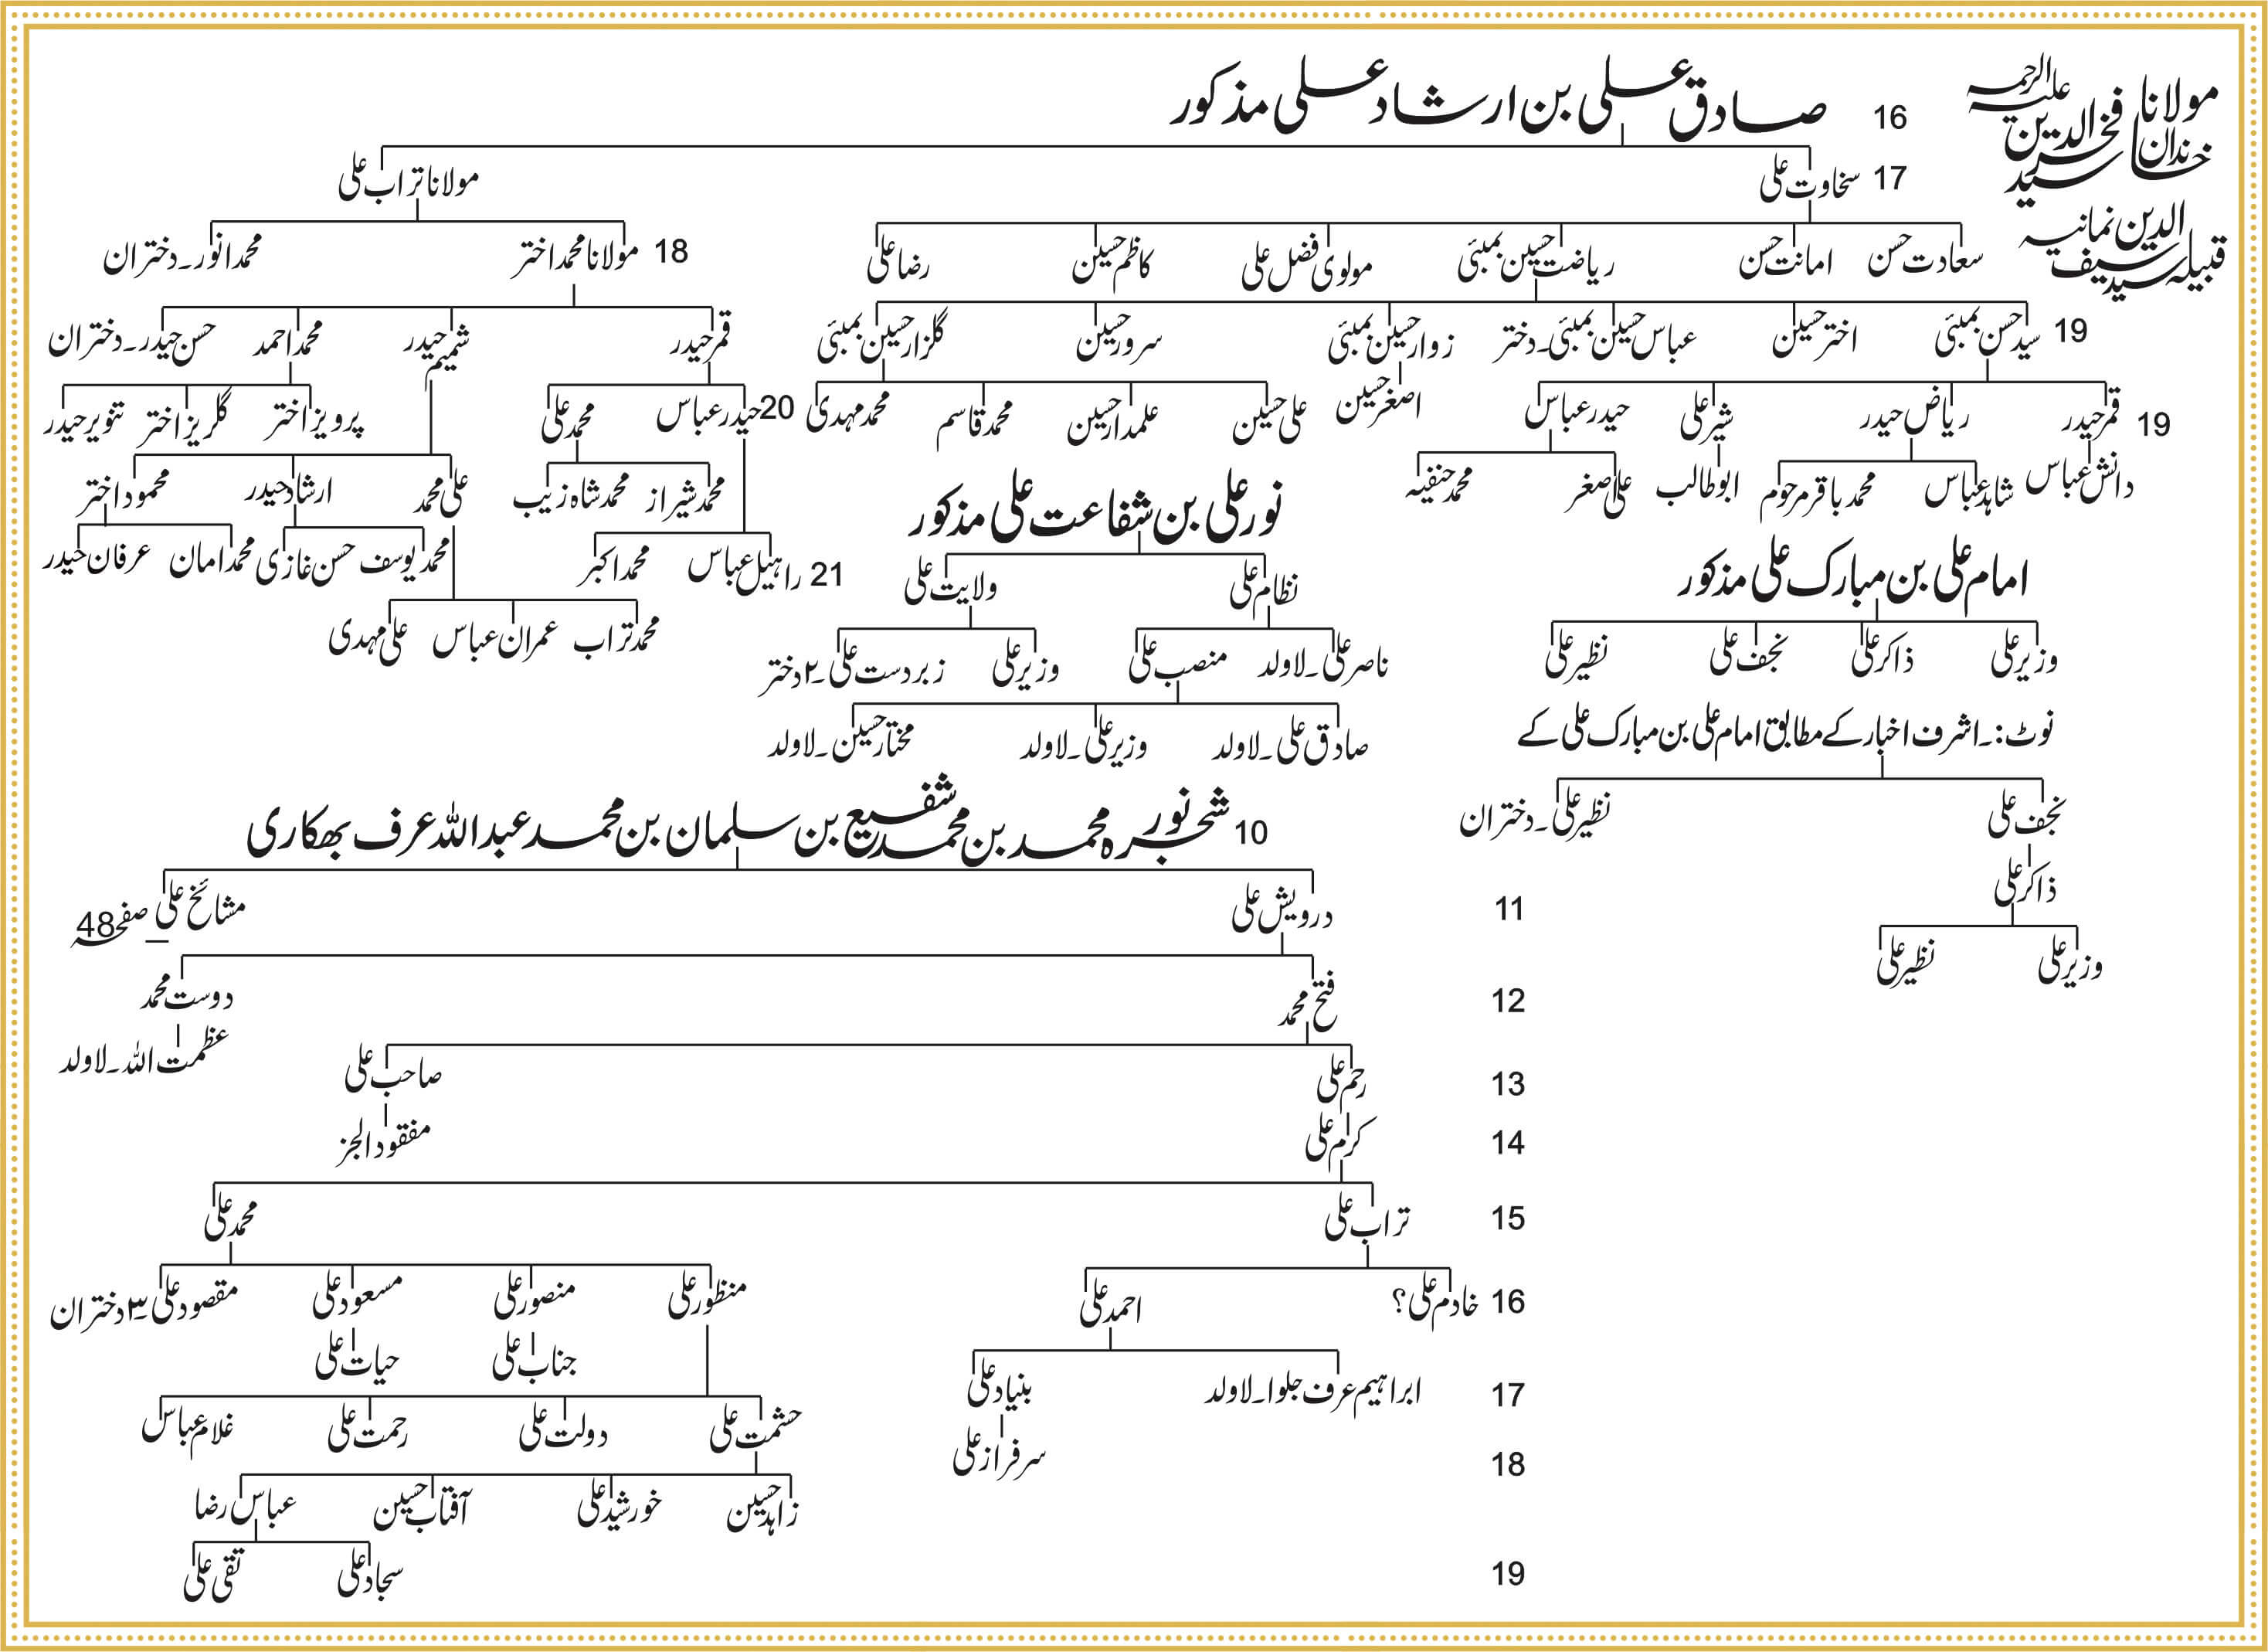 مولانا علیہ الرحمہ
فخرالدین
خاندان سید
قبیلہ سید سیف الدین نمانیہ
16 صادق علی بن ارشاد علی مذکور
17 سخاوت علی مولانا تراب علی
سعادت حسن امانت حسن ریاضت حسین بمبئی مولوی فضل علی کاظم حسین رضا علی 18 مولانا محمد اختر محمد انور۔دختران
19 سید حسن بمبئی اختر حسین عباس حسین بمبئی۔دختر زوار حسین بمبئی سرور حسین گلزار حسین بمبئی قمر حیدر شمیم حیدر محمد احمد حسن حیدر۔دختران
19 قمر حیدر ریاض حیدر شیر علی حیدر عباس اصغر حسین علی حسین علمدار حسین محمد قاسم محمد مہدی 20 حیدر عباس محمد علی پرویز اختر گلریز اختر تنویر حیدر
دانش عباس شاہد عباس محمد باقر مرحوم ابوطالب علی اصغر محمد حنفیہ محمد شیراز محمد شاہ زیب علی محمد ارشاد حیدر محمود اختر
نور علی بن شفاعت علی مذکور
21 راہیل عباس محمد اکبر محمد یوسف حسن غازی محمد امان عرفان حیدر
محمد تراب عمران عباس علی مہدی
نظام علی ولایت علی
ناصر علی۔لاولد منصب علی وزیر علی زبردست علی۔۲دختر
صادق علی۔لاولد وزیر علی۔لاولد مختار حسین۔لاولد
امام علی بن مبارک علی مذکور
وزیر علی ذاکر علی نجف علی نظیر علی
نوٹ:۔اشرف اخبار کے مطابق امام علی بن مبارک علی کے
نجف علی نظیر علی۔دختران
ذاکر علی
وزیر علی نظیر علی
10 شجرہ نور محمد بن محمد شفیع بن سلمان بن محمد عبداللہ عرف بھکاری
11 درویش علی مشائخ علی صفحہ 48
12 فتح محمد دوست محمد
عظمت اللہ۔لاولد
13 رحم علی صاحب علی
14 کرم علی مفقود الجز
15 تراب علی محمد علی
16 خادم علی؟ احمد علی منظور علی منصور علی مسعود علی مقصود علی۔۳دختران
جناب علی حیات علی
17 ابراہیم عرف جلوا۔لاولد بنیاد علی حشمت علی دولت علی رحمت علی غلام عباس
18 سرفراز علی زاہد حسین خورشید علی آفتاب حسین عباس رضا
19 سجاد علی تقی علی